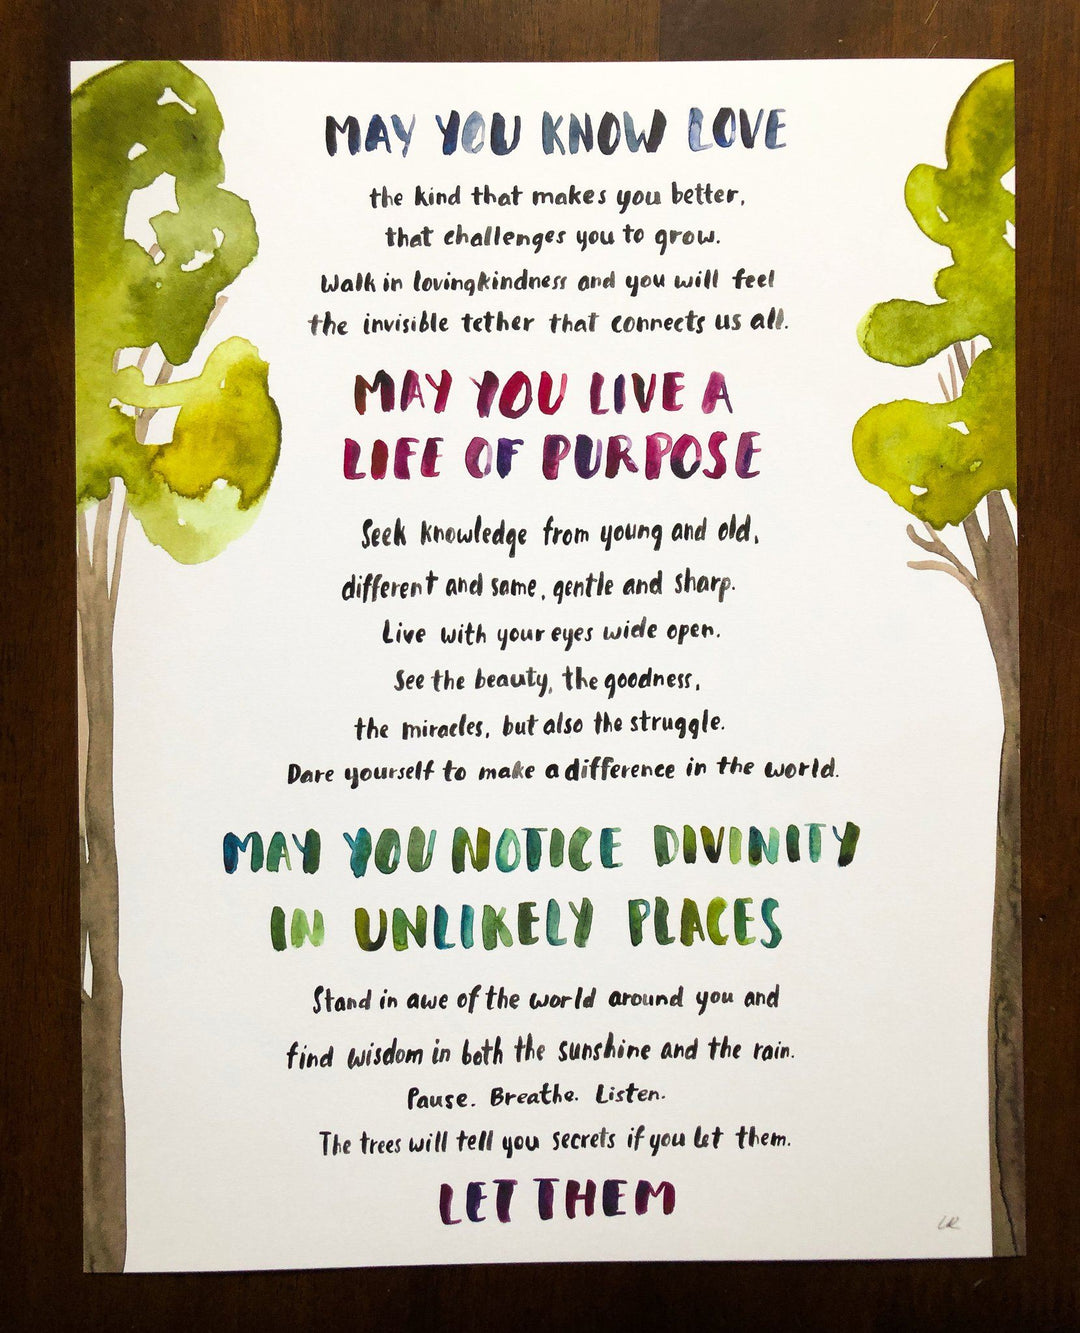 MAY YOU KNOW LOVE
the kind that makes you better,
that challenges you to grow.
Walk in lovingkindness and you will feel
the invisible tether that connects us all.
MAY YOU LIVE A
LIFE OF PURPOSE
Seek knowledge from young and old,
different and same, gentle and sharp.
Live with your eyes wide open.
See the beauty, the goodness,
the miracles, but also the struggle.
Dare yourself to make a difference in the world.
MAY YOU NOTICE DIVINITY
IN UNLIKELY PLACES
Stand in awe of the world around you and
find wisdom in both the sunshine and the rain.
Pause. Breathe. Listen.
The trees will tell you secrets if you let them.
LET THEM
LR